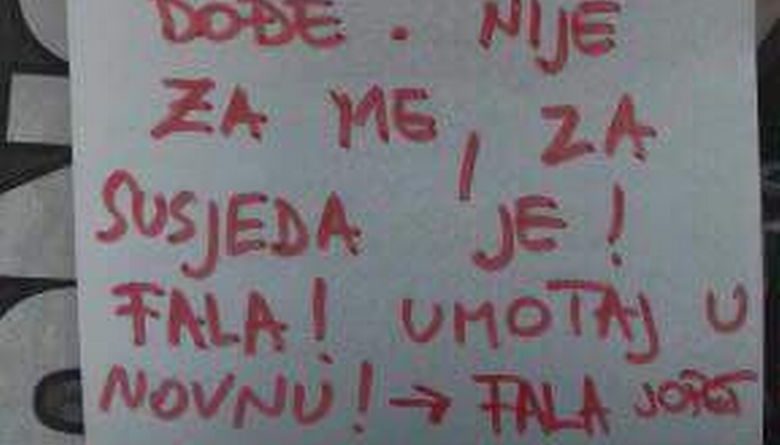 DOĐE. NIJE
ZA ME, ZA
SUSJEDA JE!
FALA! UMOTAJ U
NOVNU! → FALA JOPET